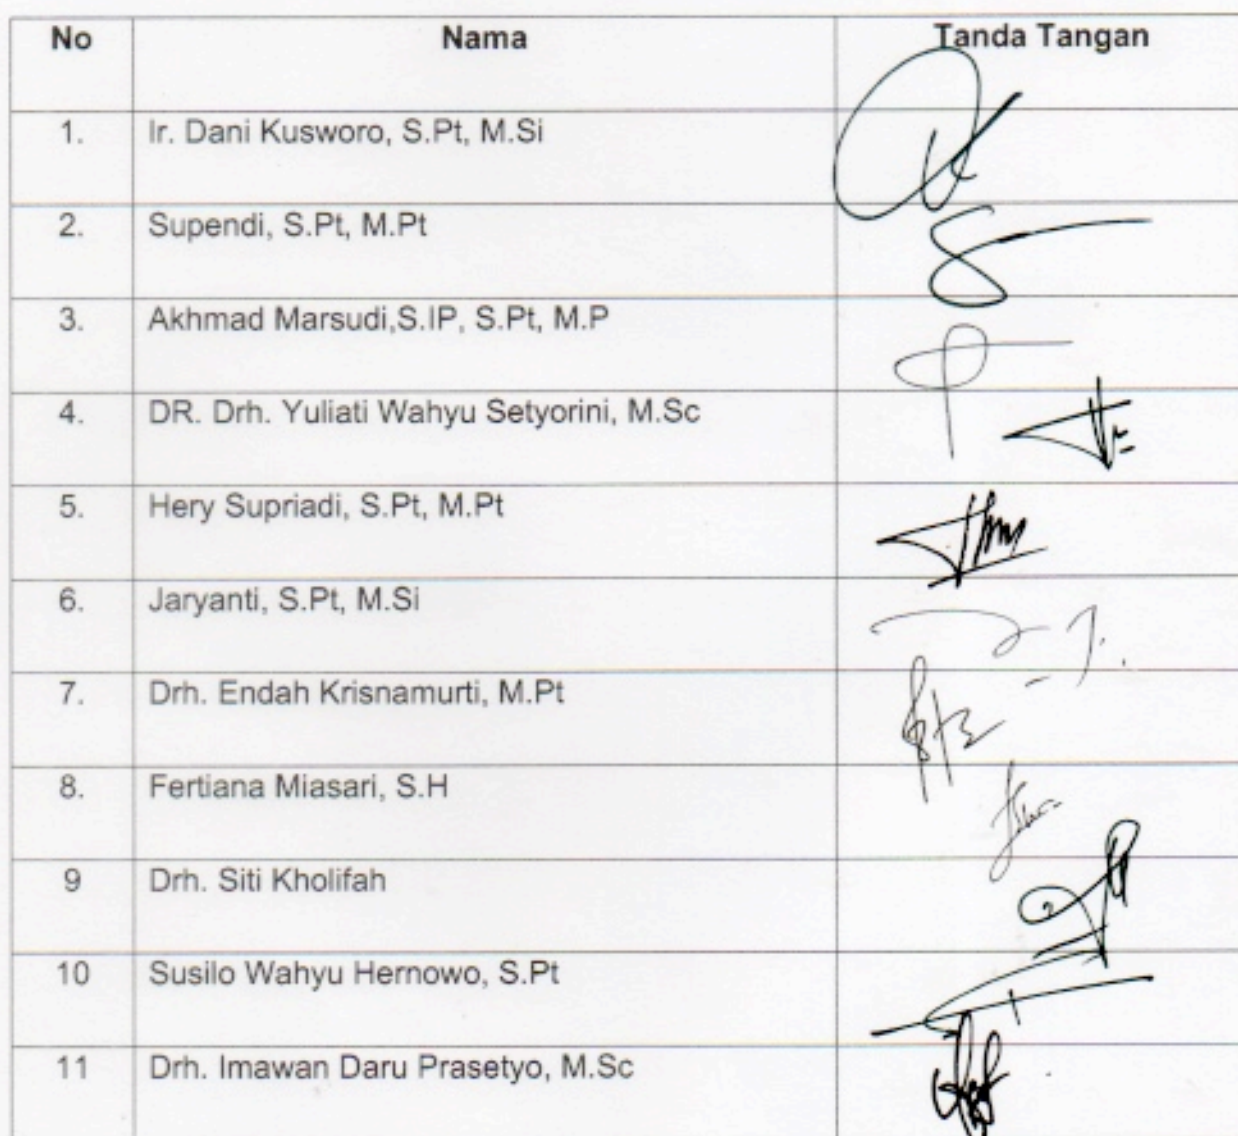 No Nama Tanda Tangan
1. Ir. Dani Kusworo, S.Pt, M.Si
2. Supendi, S.Pt, M.Pt
3. Akhmad Marsudi,S.IP, S.Pt, M.P
4. DR. Drh. Yuliati Wahyu Setyorini, M.Sc
5. Hery Supriadi, S.Pt, M.Pt
6. Jaryanti, S.Pt, M.Si
7. Drh. Endah Krisnamurti, M.Pt
8. Fertiana Miasari, S.H
9 Drh. Siti Kholifah
10 Susilo Wahyu Hernowo, S.Pt
11 Drh. Imawan Daru Prasetyo, M.Sc